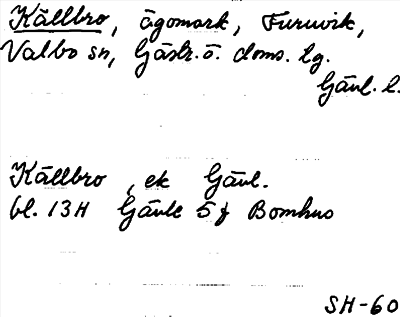 Källbro, ägomark, Furuvik,
Valbo sn, Gästr. ö. doms. lg.
Gävl. l.
Källbro, ek Gävl.
bl. 13H Gävle 5 f Bomhus
SH-60